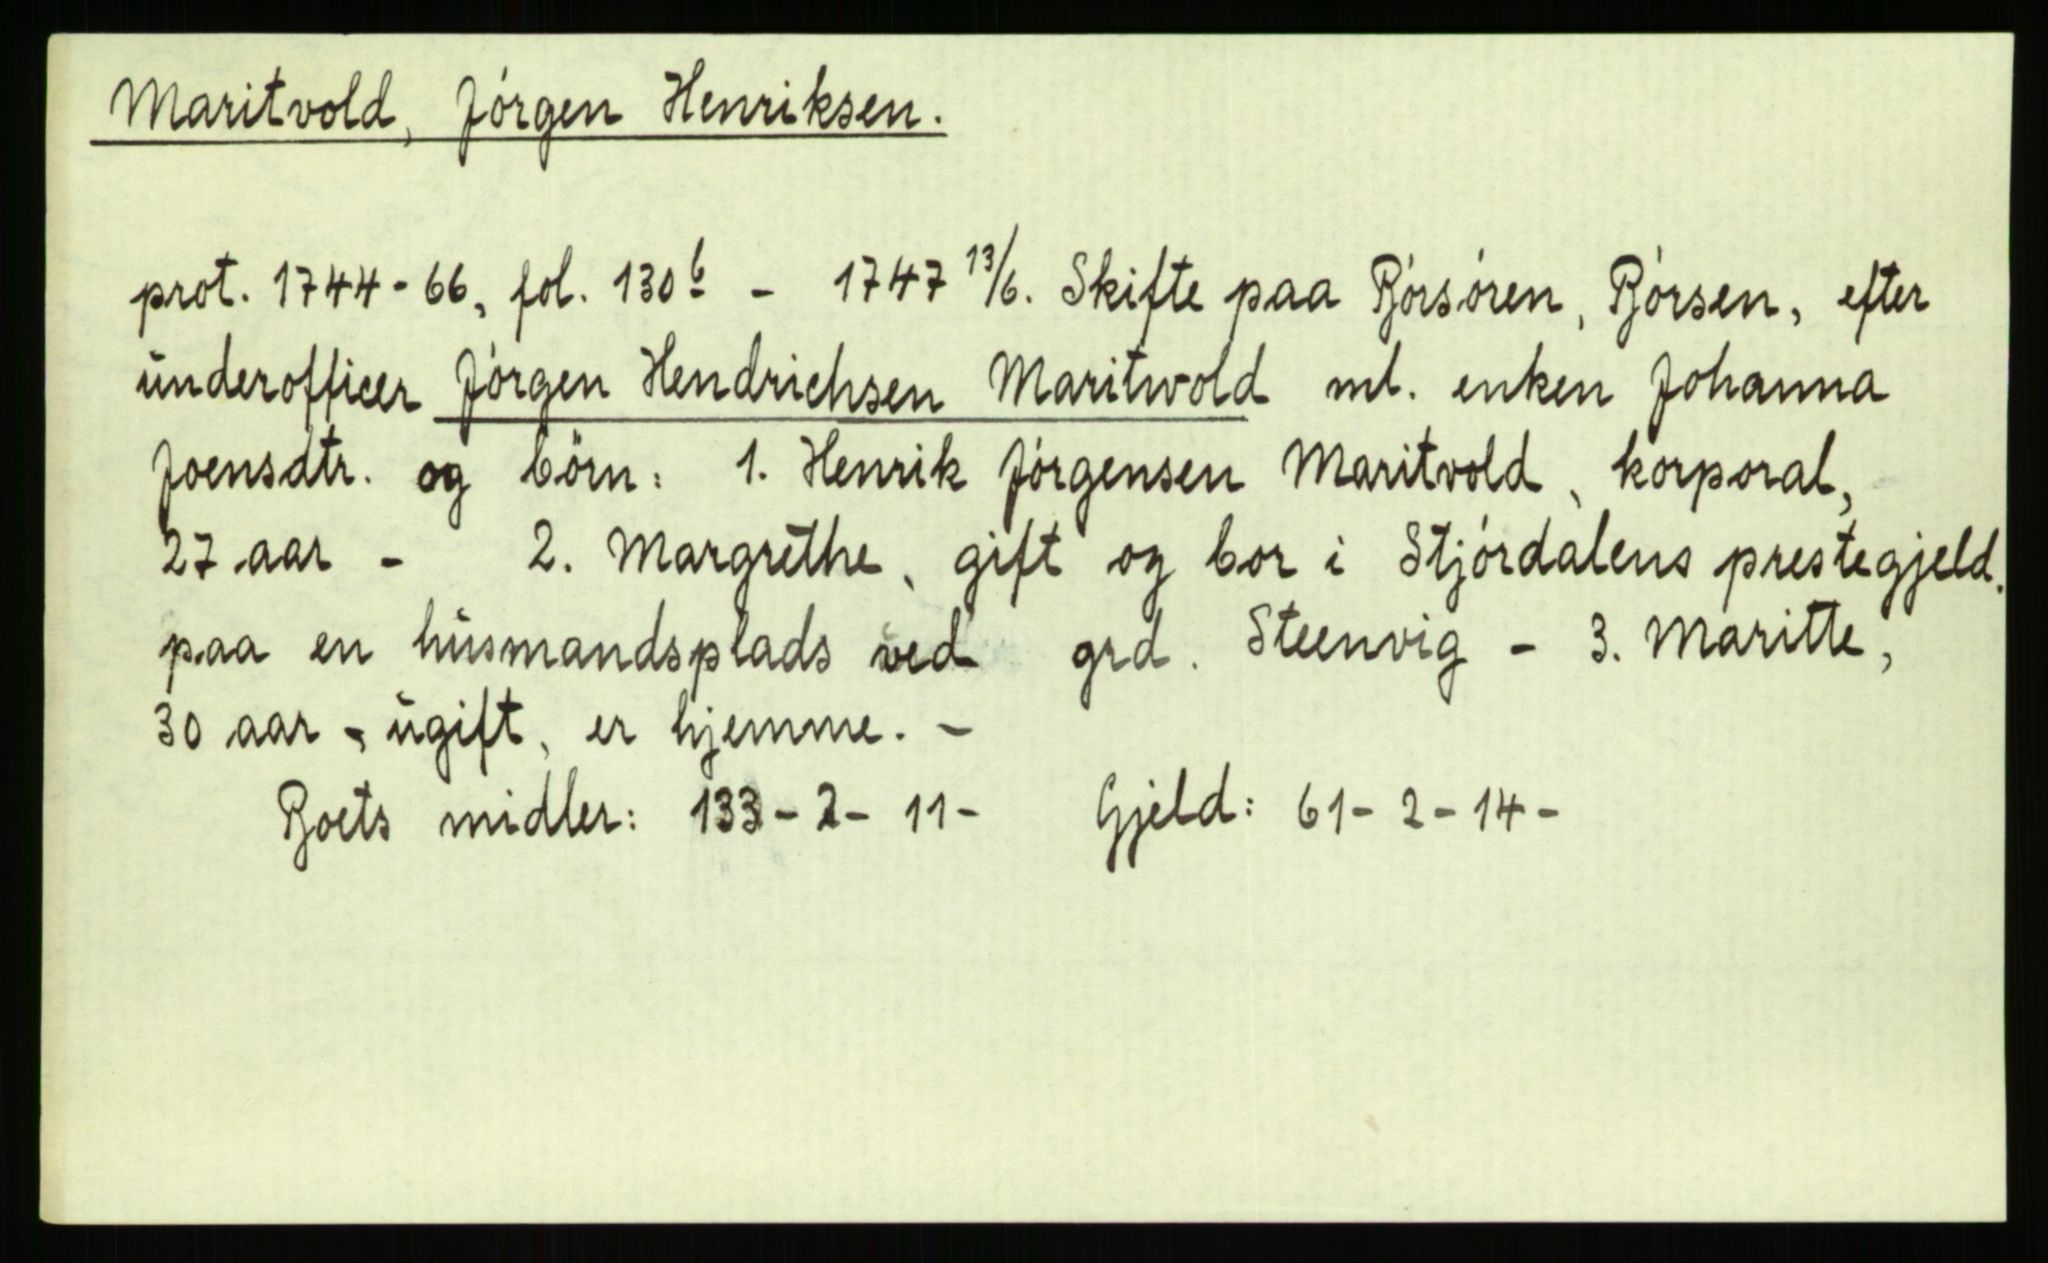 Maritvold, Jórgen Henriksen.
prot. 1744-66, fol. 130b - 1747 13/6. Skifte paa Bórsóren, Bórsen, efter
underofficer Jórgen Hendrichsen Maritwold ml. enken Johanna
Joensdtr. og börn: 1. Henrik Jórgensen Maritvold, korporal,
27 aar - 2. Margrethe, gift og bor i Stjórdalens prestegjeld.
paa en husmandsplads ved grd. Steenvig - 3. Maritte,
30 aar, ugift, er hjemme. -
Boets midler: 133 - 2 - 11 - Gjeld: 61 - 2 - 14 -